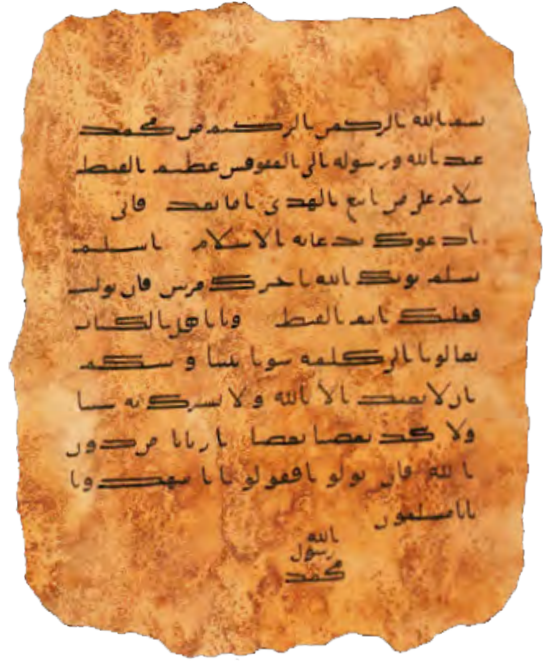 بسم الله الرحمن الرحيم من محمد
عبد الله ورسوله الى المقوقس عظيم القبط
سلام على من اتبع الهدى اما بعد فانى
ادعوك بدعاية الاسلام اسلم
تسلم يوتك الله اجرك مرتين فان توليت
فعليك اثم القبط ويا اهل الكتاب
تعالوا الى كلمة سوا بيننا وبينكم
ان لا نعبد الا الله ولا نشرك به شيا
ولا يتخذ بعضنا بعضا اربابا من دون
الله فان تولوا فقولوا اشهدوا
بانا مسلمون
الله
رسول
محمد